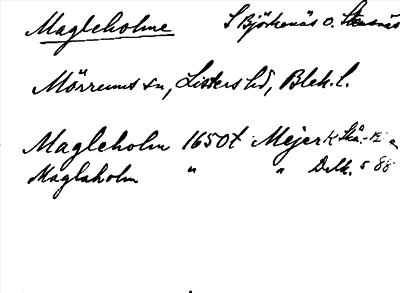 Magleholme S Björkenäs o. Stensnäs
Mörrums sn, Listers hd, Blek. l.
Magleholm 1650t Mejer K Skå.-Bl
Maglaholm " " Delk. 5 88